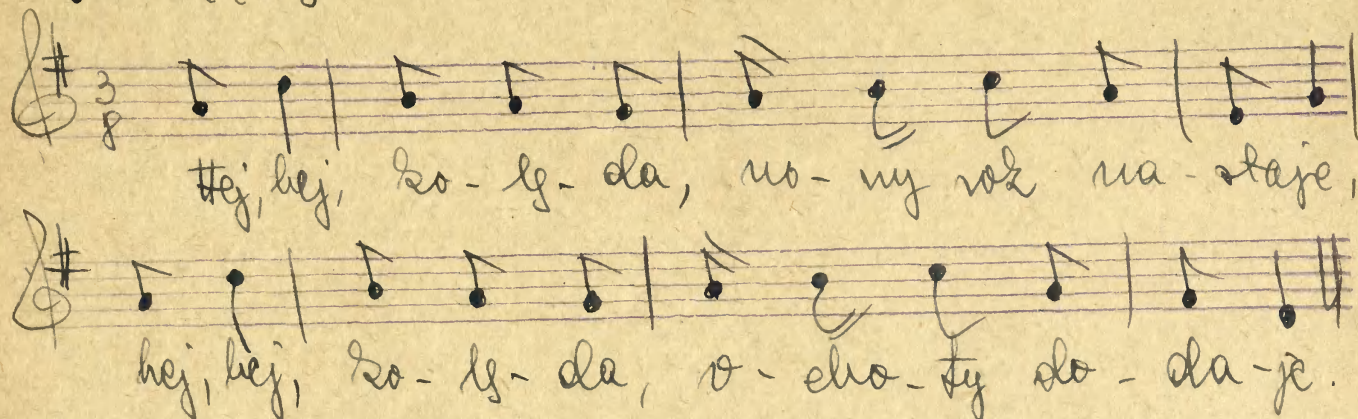 3
8
Hej, hej, ko - lę - da, no - wy rok na - staje,
hej, hej, ko - lę - da, o - cho - ty do - da - je.